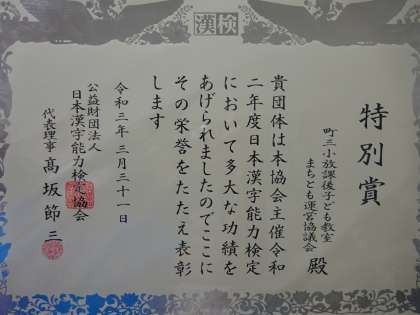 漢検
特別賞
町三小放課後子ども教室
まちとも運営協議会 殿
貴団体は本協会主催令和
二年度日本漢字能力検定
において多大な功績を
あげられましたのでここに
その栄誉をたたえ表彰
します
令和三年三月三十一日
公益財団法人
日本漢字能力検定協会
代表理事 髙坂節三